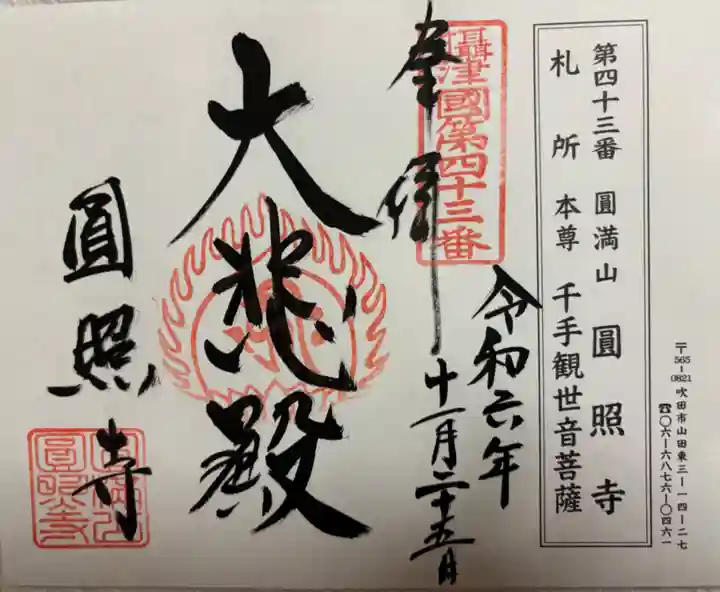 第四十三番　圓満山　圓照寺
札所　本尊　千手観世音菩薩
〒565-0821 吹田市山田東三ー一四ー二七
☎〇六ー六八七六ー〇四六一
奉拝
攝津國第四十三番
令和六年
十一月二十五日
大悲殿
圓照寺